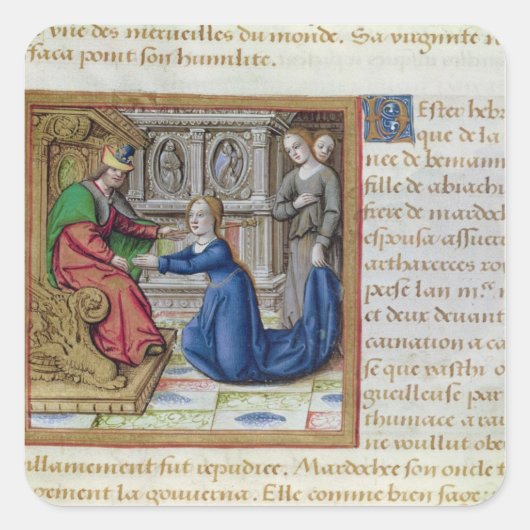 vne des merueilles du monde. Sa virginite n
faca point son humilite.
Ester hebr
que de la
nee de beniamin
fille de abiach
frere de mardoch
espousa assuer
arthaxerces ro
perse lan m.
et deux deuant
carnation a ca
se que vasthi o
gueilleuse par
thumace a ra
ne voullut obe
llamement fut repudiee. Mardochee son oncle t
gement la gouuerna. Elle comme bien sage